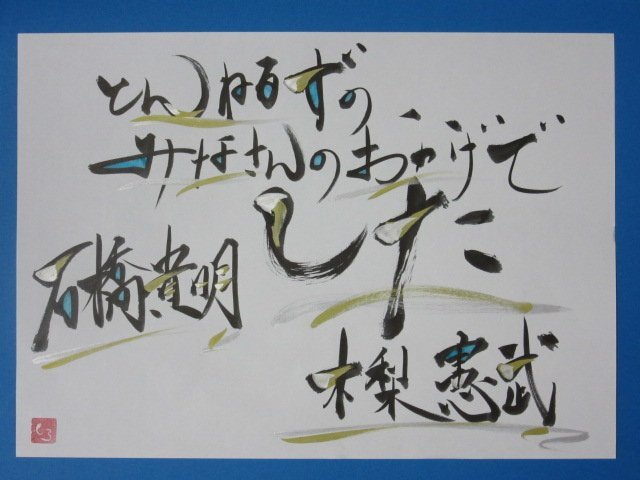 とんねるずの
みなさんのおかげで
した
石橋貴明
木梨憲武